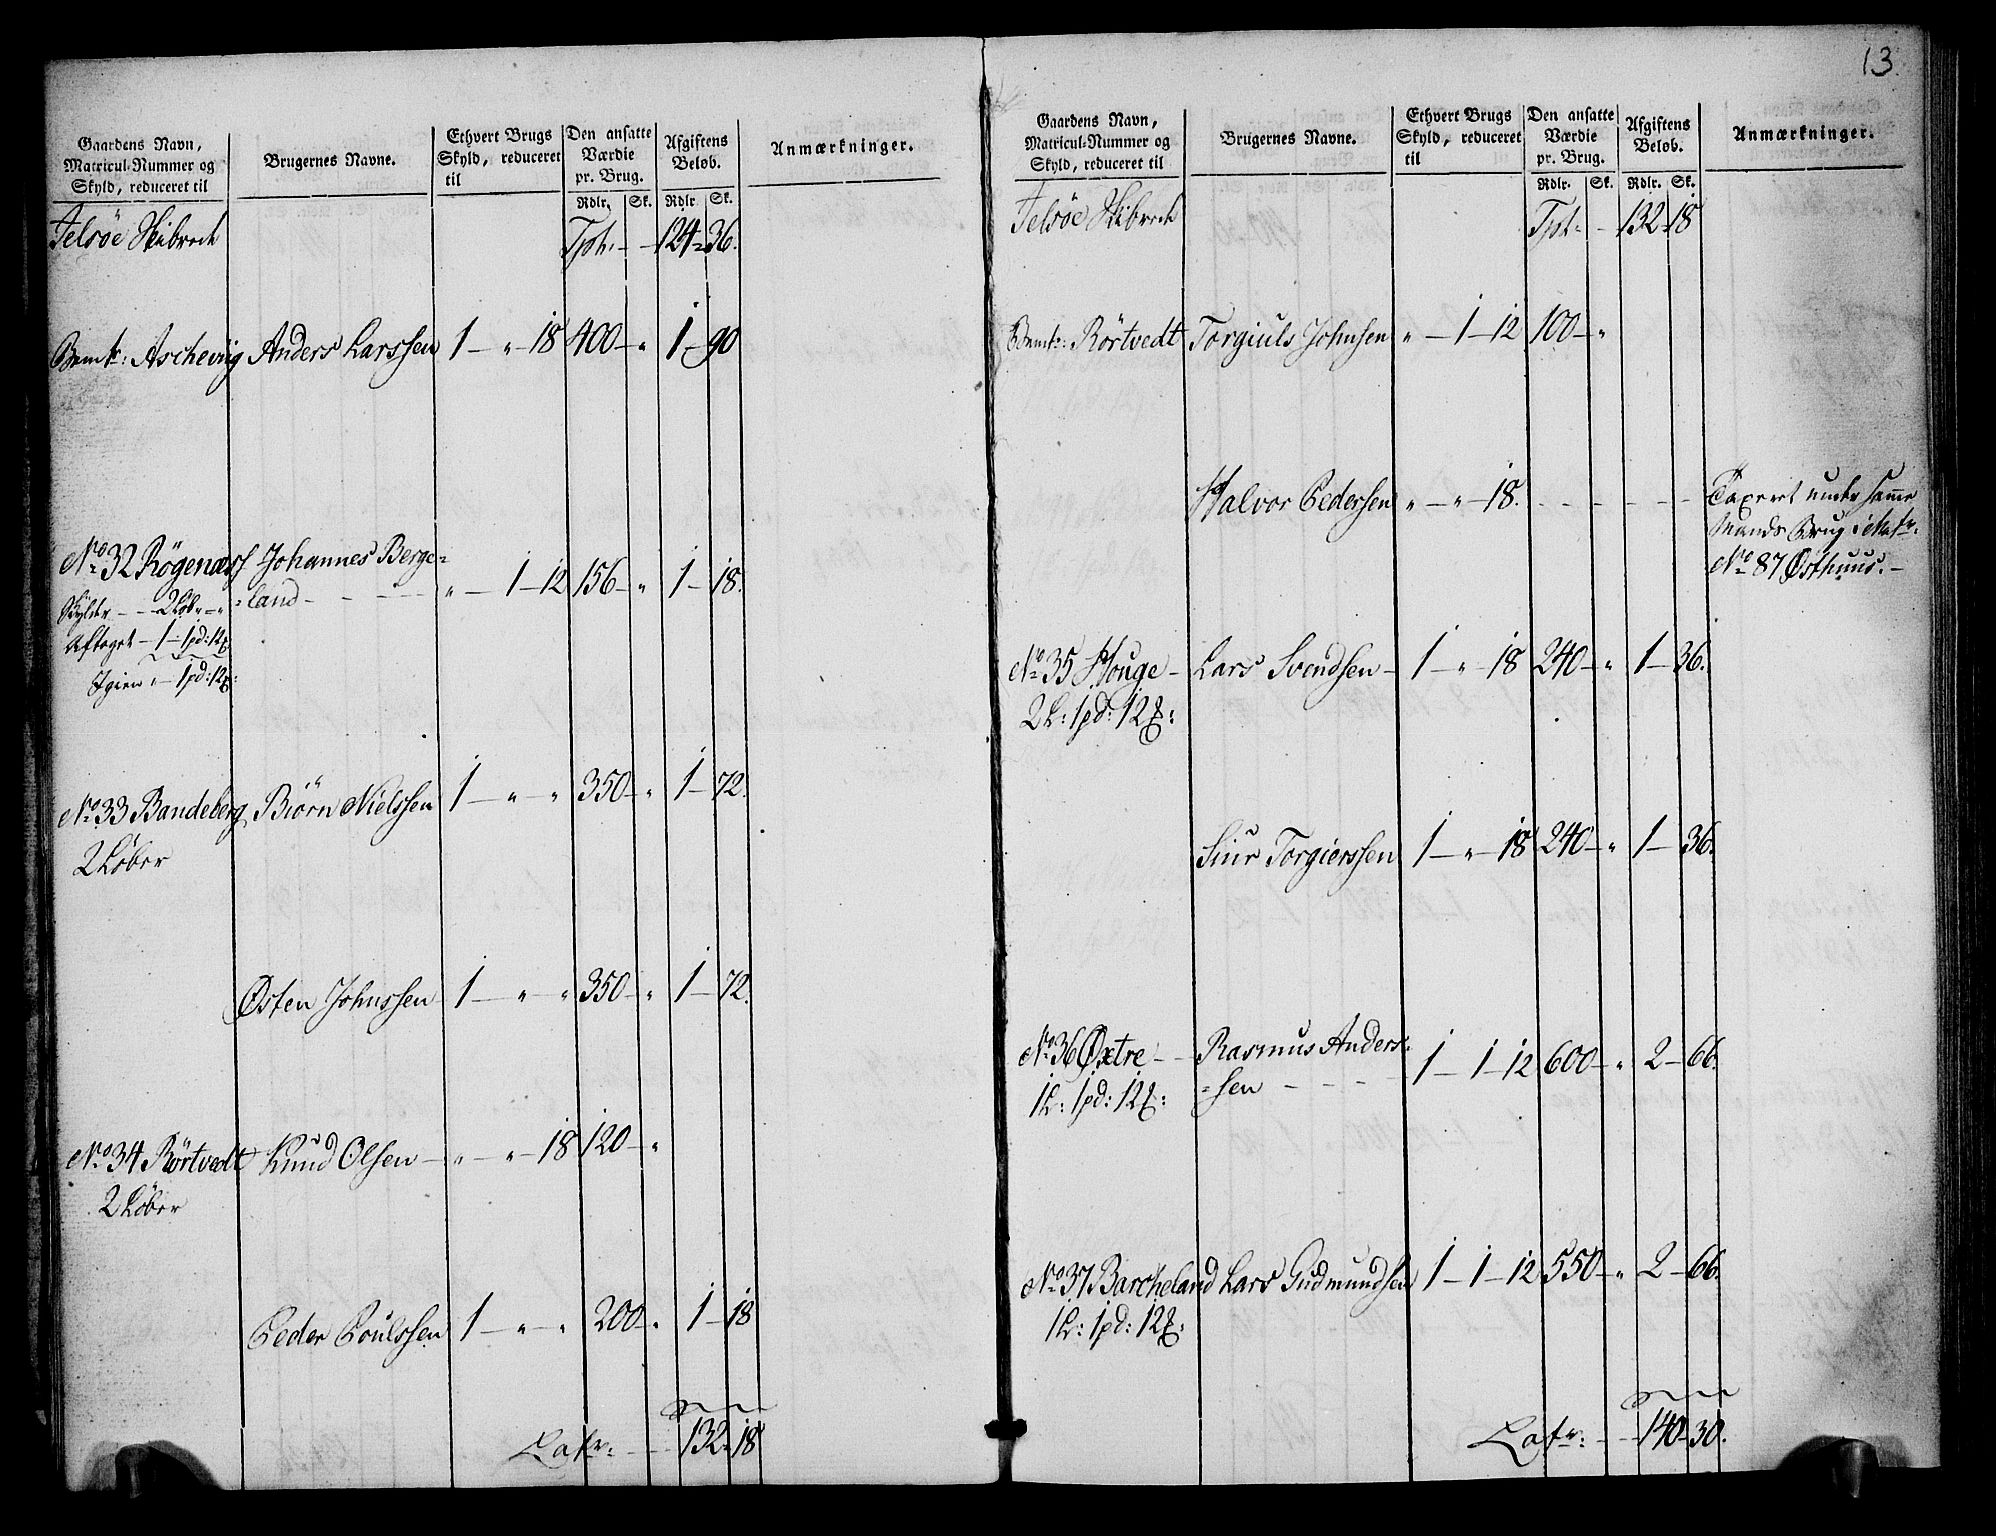 Gaardens Navn, Matricul-Nummer og Skyld, reduceret til | Brugernes Navne. | Ethvert Brugs Skyld, reduceret til | Den ansatte Værdie pr. Brug. | Afgiftens Beløb. | Anmærkninger.
Rdlr. | Sk. | Rdlr. | Sk.
Jelsöe Skibrede Tpt: - - 124 - 36.
Bemte: Ascheviig Anders Larssen 1 - " - 18 400 - " 1 - 90
No 32 Rögenæs Johannes Berge=
=land - - - - " - 1 - 12 156 - " 1 - 18.
Skylder - - 2 Løber - "
Aftaget - 1 - 1pd: 12
Igien " - 1pd: 12
No 33 Bandeberg Biörn Nielssen 1 - " - " 350 - " 1 - 72.
2 Løber
Østen Johnssen 1 - " - " 350 - " 1 - 72.
No 34 Rörtvedt Knud Olsen - " - " - 18 120 - "
2 Løber
Peder Poulssen 1 - " - " 200 - " 1 - 18
Latr: - - 132 - 18
13.
Gaardens Navn, Matricul-Nummer og Skyld, reduceret til | Brugernes Navne. | Ethvert Brugs Skyld, reduceret til | Den ansatte Værdie pr. Brug. | Afgiftens Beløb. | Anmærkninger.
Rdlr. | Sk. | Rdlr. | Sk.
Jelsöe Skibrede Tpt: - - 132 - 18
Bemte: Rörtvedt Torgiuls Johnsen " - 1 - 12 100 - "
Halvor Pedersen " - " - 18. - - - - - Taxeret under samme
Mands Brug i Matr:
No 87 Østhuus. -
No 35 Houge - Lars Svendsen - 1 - " - 18 240 - " 1 - 36.
2L: 1pd: 12
Siur Torgierssen 1 - " - 18 240 - " 1 - 36.
No 36 Øxtre - - Rasmus Anders=
=sen - - - - 1 - 1 - 12 600 - " 2 - 66.
1L: 1pd: 12
No 37 Barcheland Lars Gudmundsen 1 - 1 - 12 550 - " 2 - 66.
1L: 1pd: 12
Latr: - - 140 - 30.